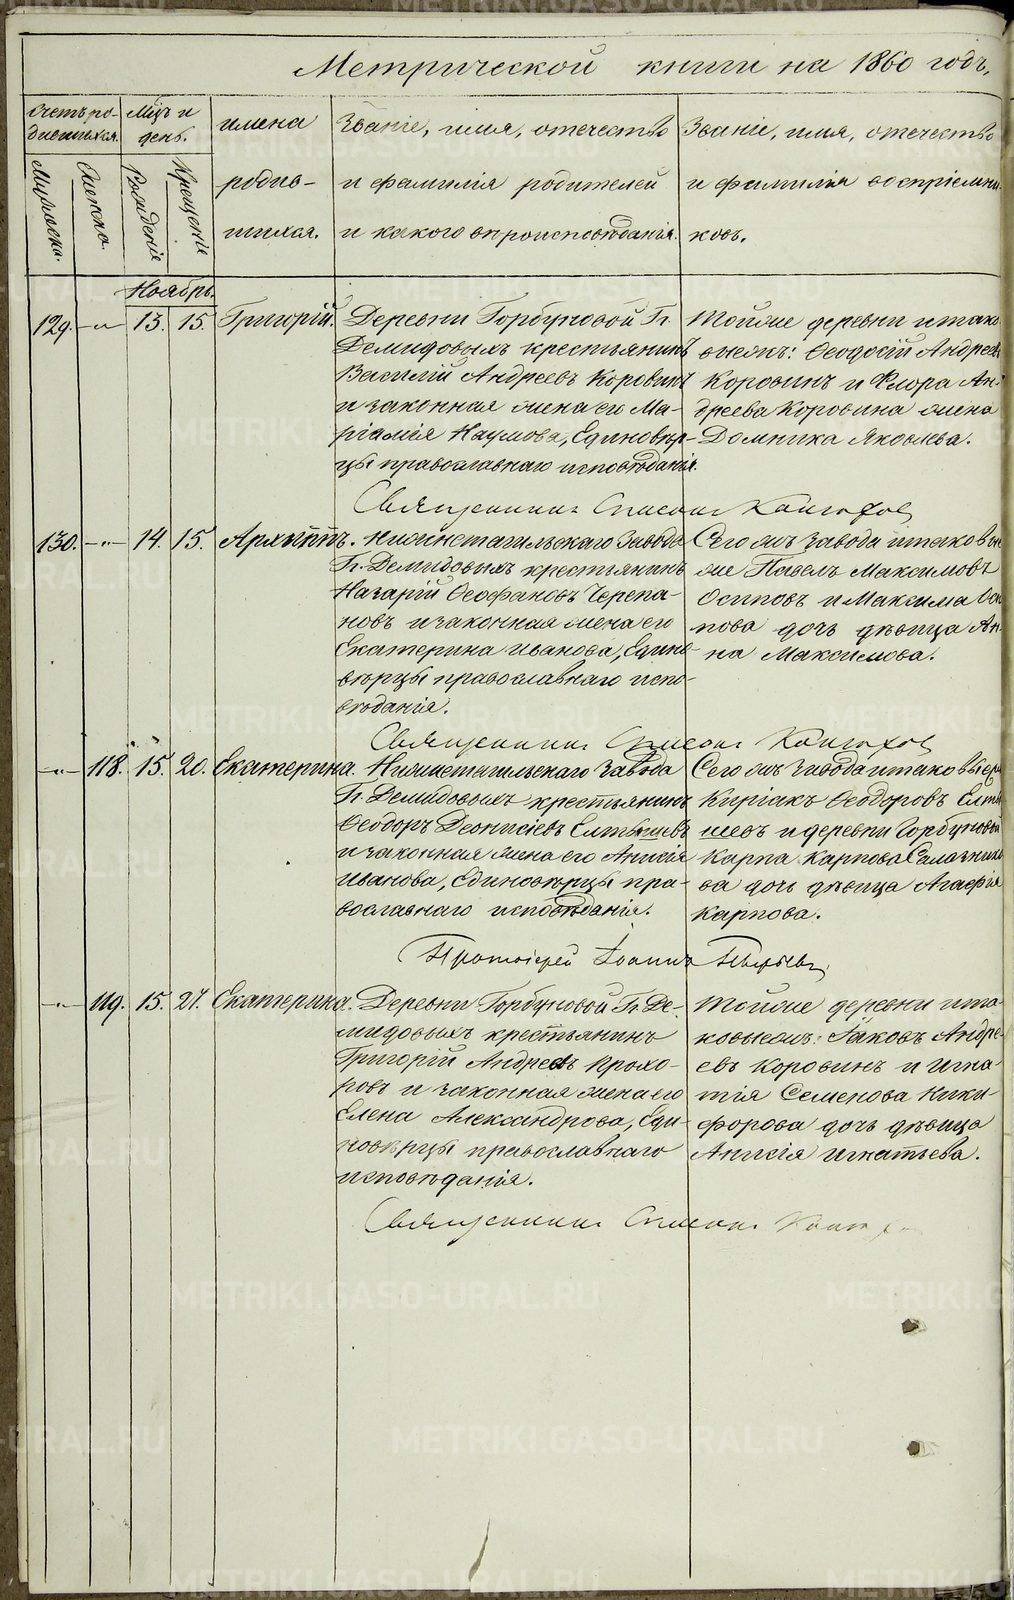 Метрической книги на 1860 годъ,
Счетъ ро-
дившихся.
Мцъ и
день.
имена
родив-
шихся.
Званіе, имя, отечество
и фамилія родителей
и какого вѣроисповѣданія.
Званіе, имя, отечество
и фамилія воспріемни-
ковъ.
Мужеска.
Женска.
Рожденіе
Крещеніе
Ноябрь.
129. -"- 13. 15. Григорій.
Деревни Горбуновой Гг.
Демидовыхъ крестьянинъ
Василій Андреевъ Коровинъ
и законная жена его Ма-
ріамія Наумова, Единовѣр-
цы православнаго исповѣданія.
Тойже деревни и тако
выежъ: Ѳеодосій Андреев
Коровинъ и Флора Ан-
дреева Коровина жена
Домника Яковлева.
Священникъ
130. -"- 14. 15. Архиппъ.
Нижнетагильскаго Завода
Гг. Демидовыхъ крестьянинъ
Назарій Ѳеофановъ Черепа-
новъ и законная жена его
Екатерина Иванова, Едино-
вѣрцы православнаго испо-
вѣданія.
Сего жъ завода и таковы
же Павелъ Максимовъ
Осиповъ и Максима Оси
пова дочь дѣвица Ан-
на Максимова.
Священникъ
-"- 118. 15. 20. Екатерина.
Нижнетагильскаго Завода
Гг. Демидовыхъ крестьянинъ
Ѳеодоръ Деонисіевъ Елтышевъ
и законная жена его Анисія
Иванова, Единовѣрцы пра-
вославнаго исповѣданія.
Сего жъ Завода и таковые
Киріакъ Ѳеодоровъ Елты
шевъ и деревни Горбуновой
Карпа Карпова
ва дочь дѣвица Агафія
Карпова.
Протоіерей Іоаннъ
-"- 119. 15. 21. Екатерина.
Деревни Горбуновой Гг. Де-
мидовыхъ крестьянинъ
Григорій Андреевъ Прохо-
ровъ и законная жена его
Елена Александрова, Еди-
новѣрцы православнаго
исповѣданія.
Тойже деревни и та-
ковыежъ: Іаковъ Андре-
евъ Коровинъ и Игна-
тія Семенова Ники-
форова дочь дѣвица
Анисія Игнатьева.
Священникъ
METRIKI.GASO-URAL.RU